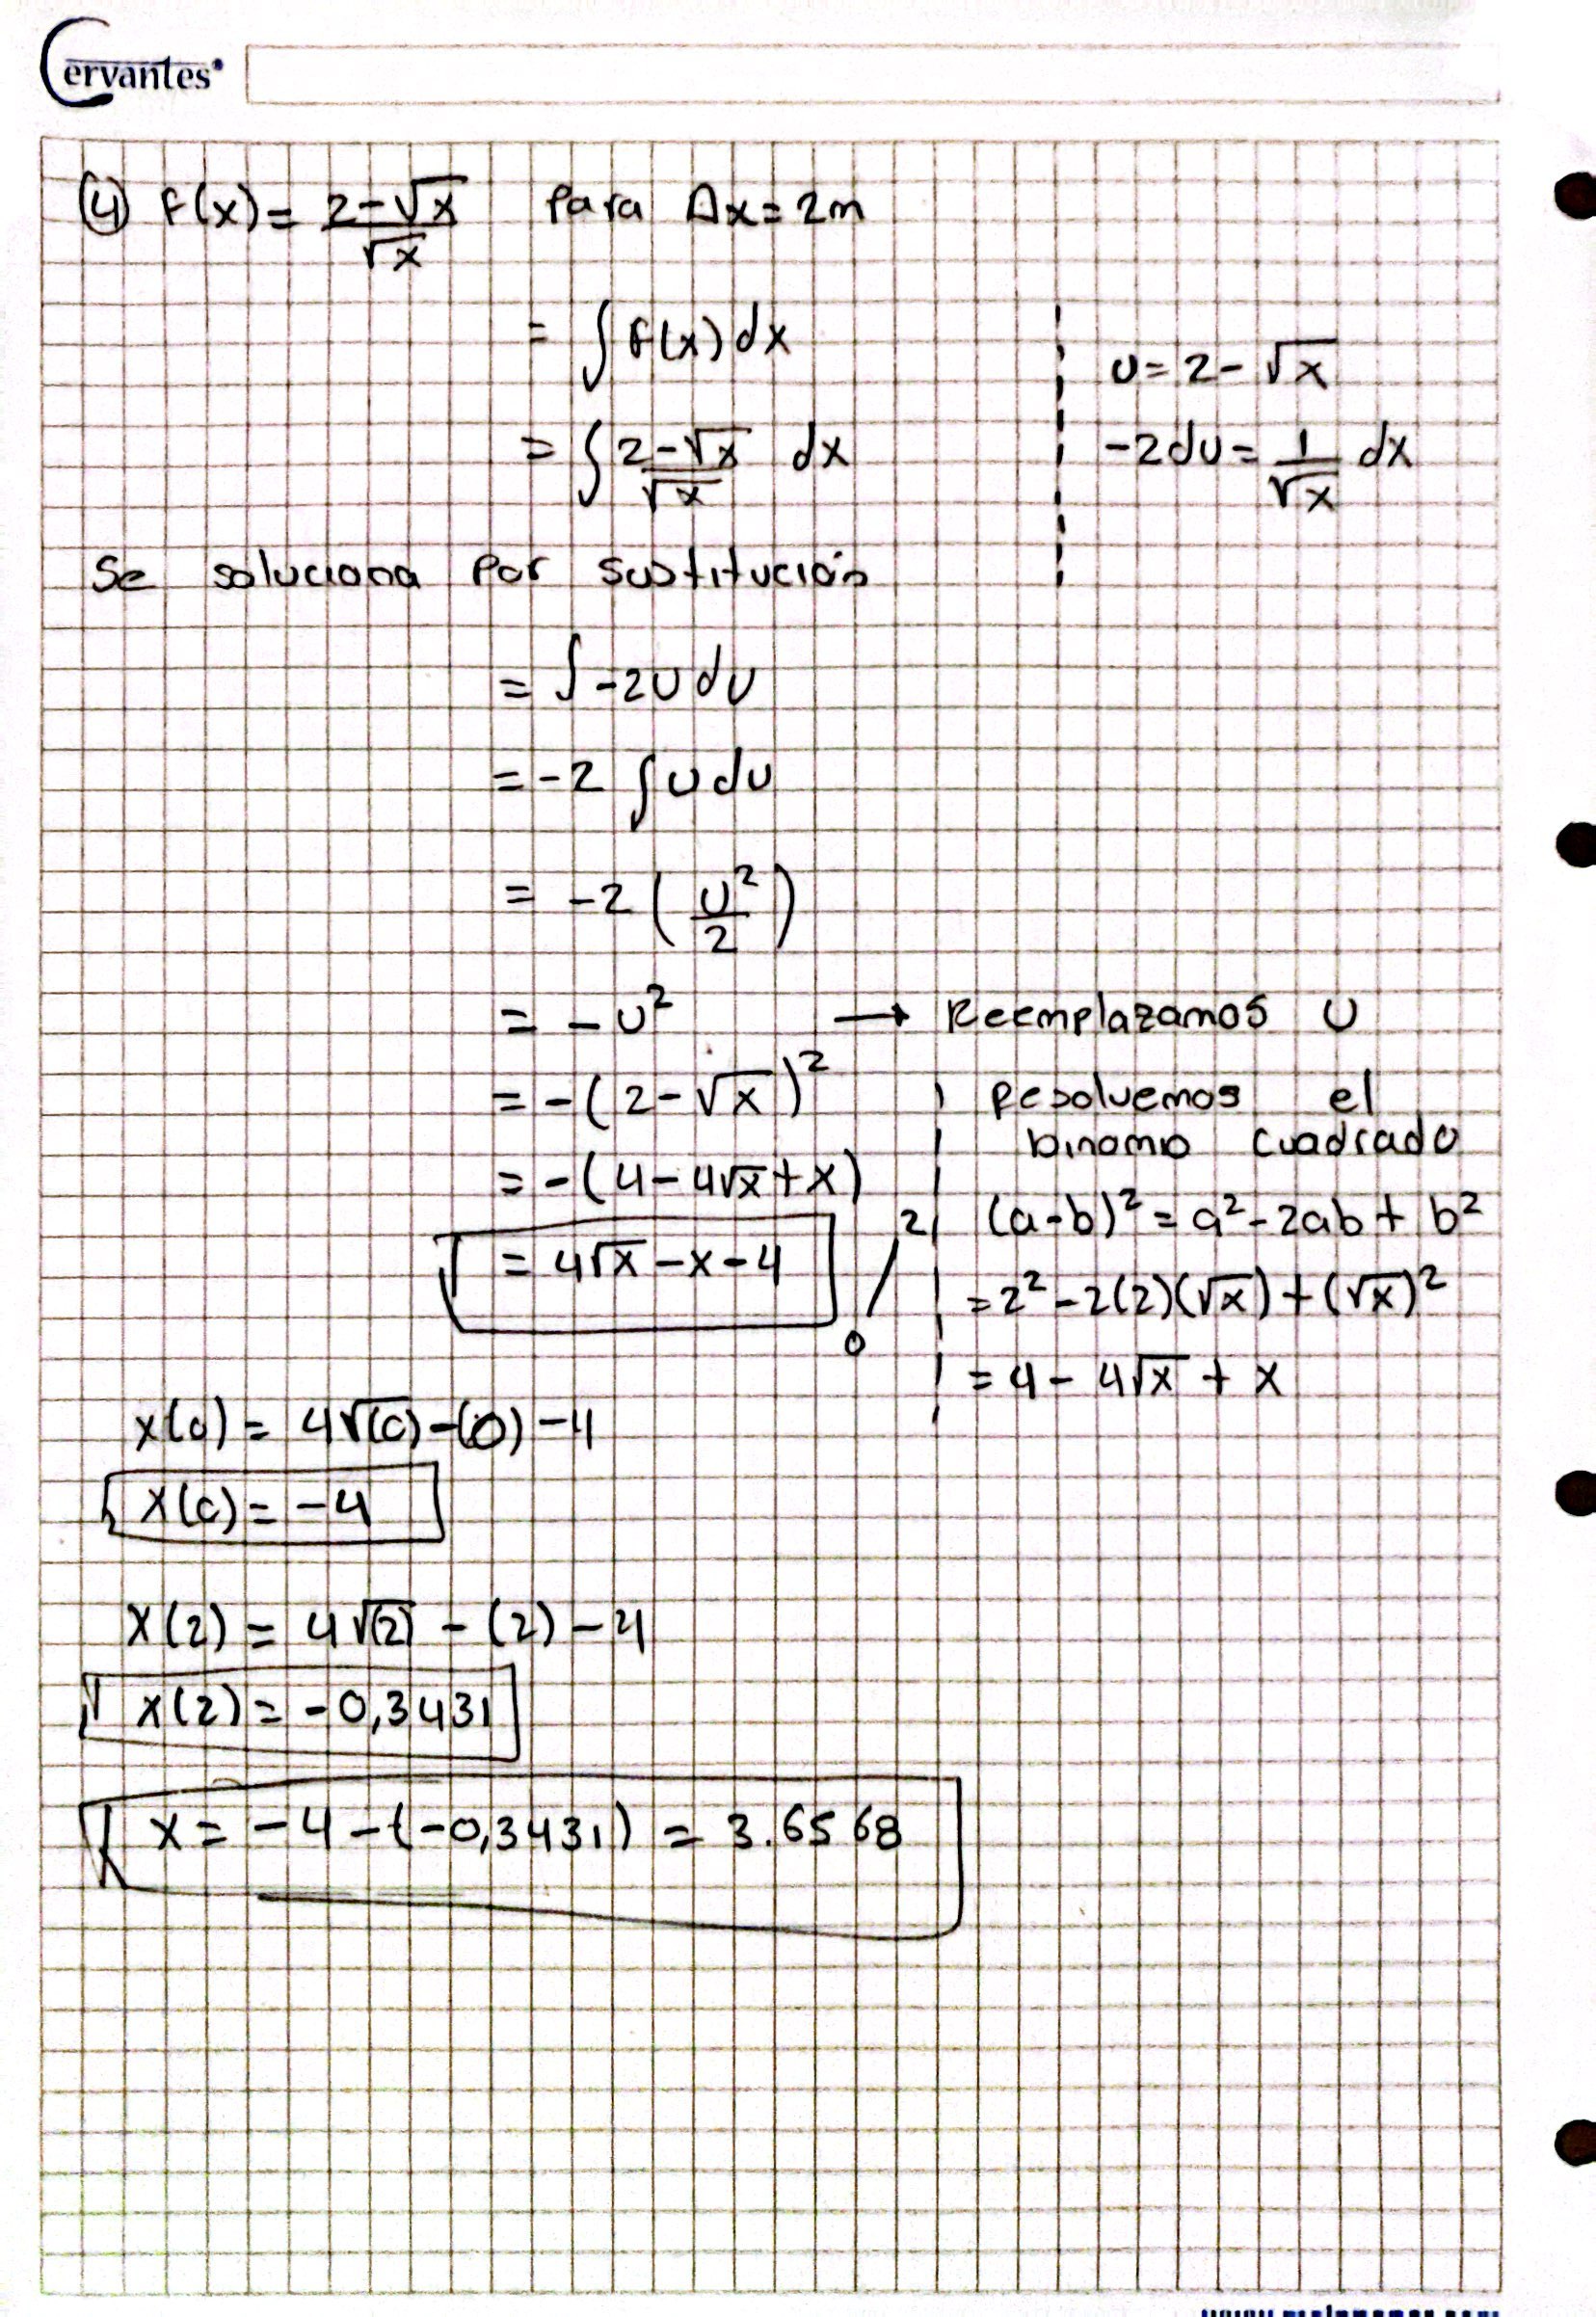 Cervantes
④ F(x) = (2-√x)/√x Para Δx = 2m
= ∫ F(x) dx
u = 2 - √x
= ∫ (2-√x)/√x dx
-2du = 1/√x dx
Se soluciona por sustitución
= ∫ -2u du
= -2 ∫ u du
= -2 (u²/2)
= -u² → Reemplazamos u
= -(2-√x)²
= -(4-4√x+x)
= 4√x - x - 4 /₀²
Resolvemos el
binomio cuadrado
(a-b)² = a² - 2ab + b²
= 2² - 2(2)(√x) + (√x)²
= 4 - 4√x + x
x(0) = 4√(0) - (0) - 4
x(0) = -4
x(2) = 4√(2) - (2) - 4
x(2) = -0,3431
x = -4 - (-0,3431) = 3.6568